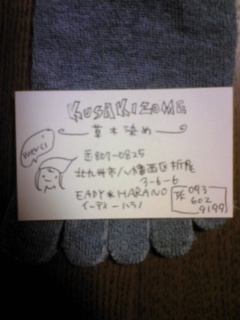 KUSAKIZOME
草木染め
merci
〒807-0825
北九州市八幡西区折尾
3-6-6
EADY★HARANO
イーディーハラノ
TEL 093
602
9199